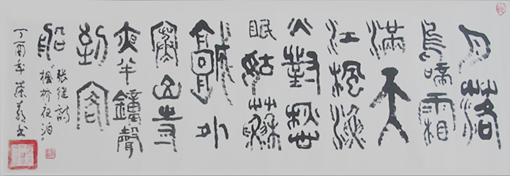 月落
烏啼霜
滿天
江楓漁
火對愁
眠姑蘇
城外
寒山寺
夜半鐘聲
到客
船
張繼詩
楓橋夜泊
丁酉年 書